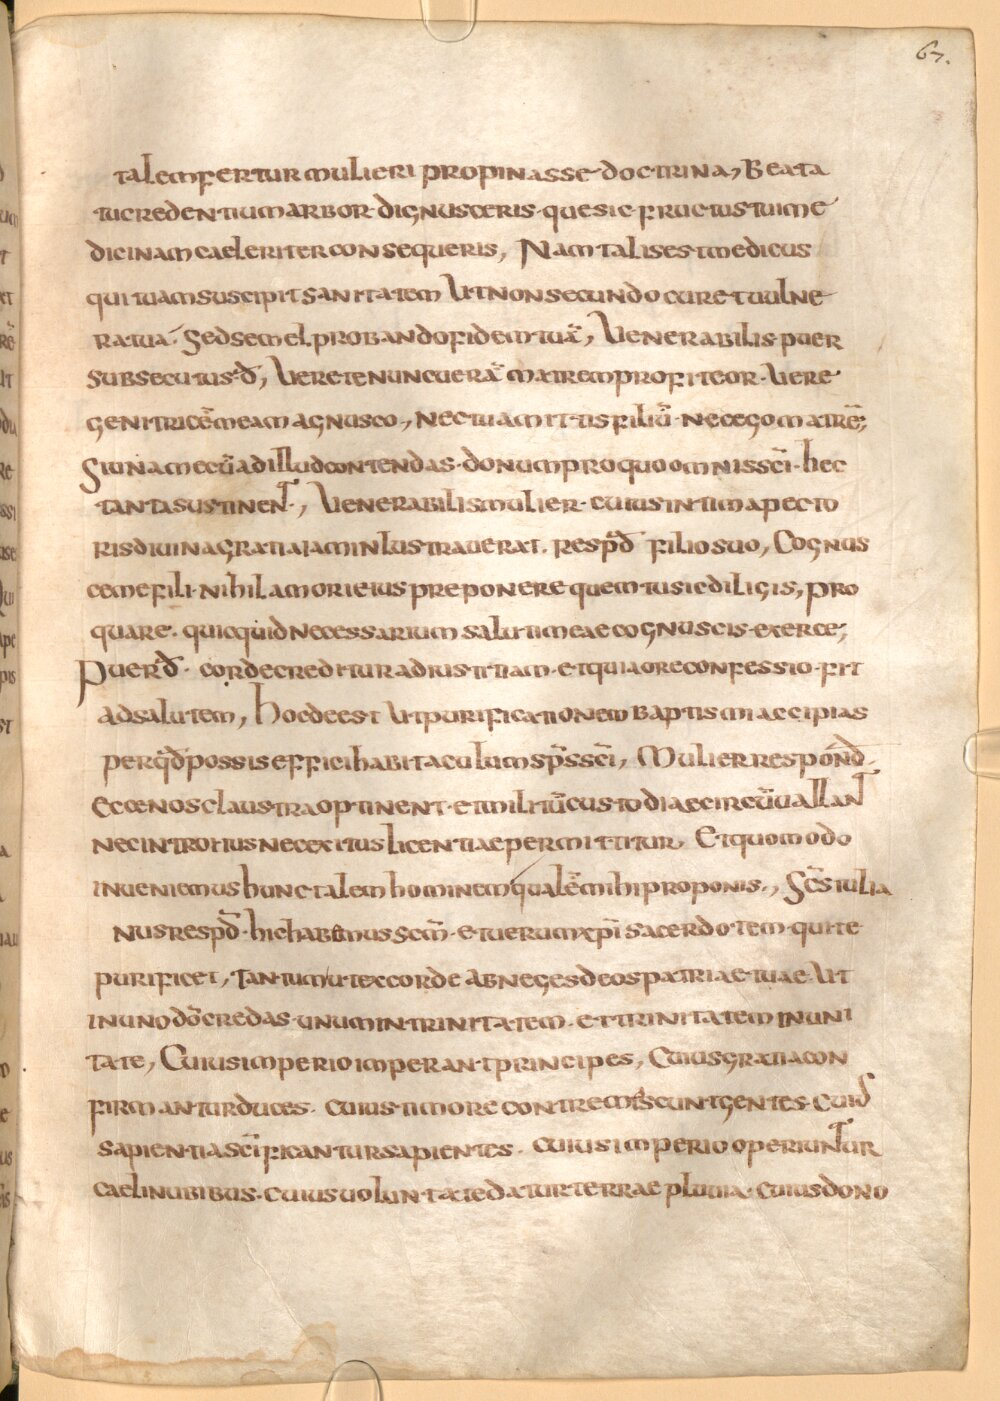 67.
talem fertur mulieri propinasse doctrina, Beata
tu credentium arbor. dignus ceris. que sic fructus tui me
dicinam caeleriter consequeris, Nam talis est medicus
qui tuam suscipit sanitatem Ut non secundo curet vulne
ra tua. Sed semel probando fidem tuā, Venerabilis puer
subsecutus .đ, Vere te nunc verā matrem profiteor. Vere
genitricē meam agnusco, nec tu amittis filiū. nec ego matrē;
Si una mecū ad illud contendas. donum pro quo omnis sc̄i. hec
tanta sustinent., Venerabilis mulier. cuius intima pecto
ris divina gratia iam inlustraverat. resp̄đ filio suo, Cognus
ce me fili. nihil amori eius preponere quem tu sic diligis, pro
quare. quicquid necessarium saluti meae cognuscis. exerce;
Puer đ. corde creditur ad iustitiam. et quia ore confessio. fit
ad salutem, hoc deest Ut purificationem baptismi accipias
per q̄đ possis effici habitaculum sp̄s sc̄i, Mulier respond̄.
Ecce nos claustra optinent. et militū custodiae circūvallant
nec introitus nec exitus licentiae permittitur, Et quomodo
inveniemus hunc talem hominem qualē mihi proponis., Sc̄s iulia
nus resp̄đ. hic habemus sc̄m. et verum xp̄i sacerdotem. qui te
purificet, Tantum ut ex corde abneges deos patriae tuae. Ut
in uno dō credas. unum in trinitatem. et trinitatem in uni
tate, Cuius imperio imperant principes, Cuius gratia con
firmantur duces. cuius timore contremiscunt gentes. Cuius
sapientia sc̄ificantur sapientes. cuius imperio operiuntur
caeli nubibus. cuius voluntate datur terrae pluvia. cuius dono